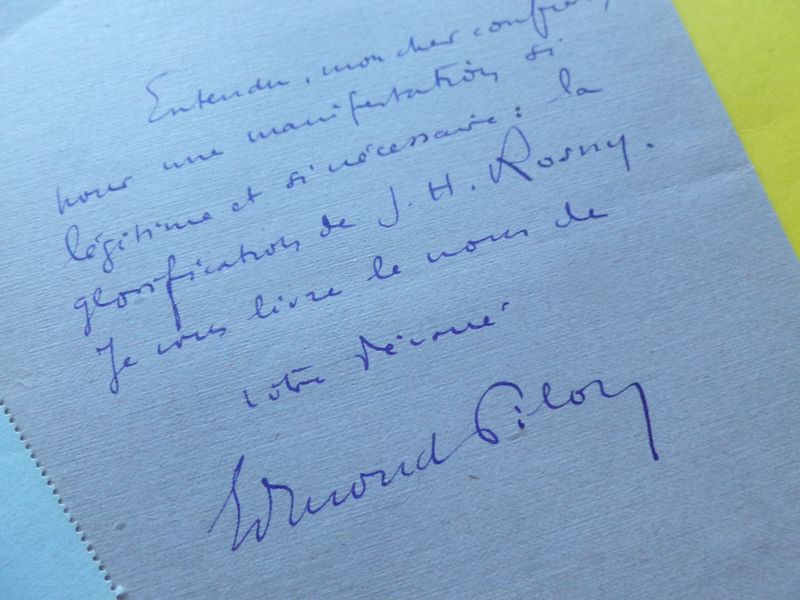 Entendu, mon cher confrère,
pour une manifestation si
légitime et si nécessaire : la
glorification de J. H. Rosny.
Je vous livre le nom de
votre dévoué
Edmond Pilon